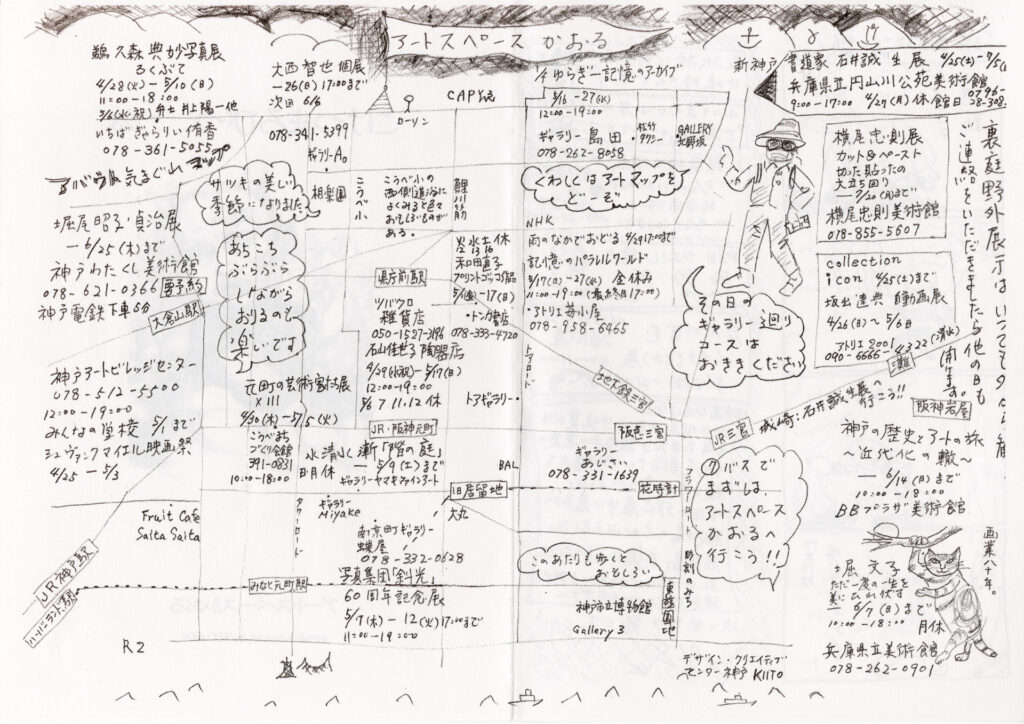 アートスペースかおる
鵜久森典妙写真展
ろくぶて
4/28(火)−5/10(日)
11:00-18:00
5/6(水・祝)弁士井上陽一他
いちばぎゃらりぃ侑香
078-361-5055
大西智也個展
−26(日)17:00まで
次回 6/6
078-341-5399
ギャラリーA。
ローソン
5/16−27(水)
12:00-19:00
ギャラリー島田
078-262-8058
GALLERY
北野坂
新神戸
書道家 石井誠 生展 4/25(土)-7/5(日)
兵庫県立円山川公苑美術館
9:00-17:00 4/27(月)休館日
横尾忠則展
カット&ペースト
切った貼ったの
大立ち回り
−7/20(月)まで
横尾忠則美術館
078-855-5607
裏庭野外展示はいつでも
ご連絡をいただきましたら他の日も
開けます。
collection
icon 4/25(土)まで
坂出達典 自動画展
4/26(日)〜5/6
アトリエ2001
090-6666-4322
堀尾昭子・貞治展
−6/25(木)まで
神戸わたくし美術館
078-621-0366 要予約
神戸電鉄下車6分
大倉山駅
サツキの美しい
季節になりました
相楽園
こうべ小
こうべ小の
西側道沿に
よくみると色々
おもしろいものが
ある。
鯉川筋
くわしくはアートマップを
どーぞ
あちこち
ぶらぶら
しながら
おりるのも
楽しいです
県庁前駅
ツバクロ
雑貨店
050-1527-3196
石山佳世子陶器店
4/29(水祝)−5/17(日)
12:00-19:00
5/6 7.11.12休
和田直子
プリントゴッコ作品
5/1(金)−17(日)
・トンカ書店
078-333-4720
NHK
雨のなかでおどる 4/29 17:00まで
記憶のパラレルワールド
5/17(日)−27(水) 金休み
11:00-19:00(最終日17:00)
・アトリエ苺小屋
078-958-6465
トアロード
トアギャラリー・
その日の
ギャラリー廻り
コースは
おききください
神戸アートビレッジセンター
078-512-5500
12:00-19:00
みんなの学校 5/1まで
シュヴァンクマイエル映画祭
4/25−5/3
元町の芸術家村展
×III
4/30(木)−5/5(火)
こうべまち
づくり会館
391-0831
10:00-18:00
JR・阪神元町
水清公漸「階の庭」
日月休 −5/9(土)まで
ギャラリーヤマキファインアート
BAL
地下鉄三宮
阪急三宮
JR三宮
城崎、石井誠生展へ
行こう!!
灘
阪神岩屋
ギャラリー
あじさい
078-331-1639
旧居留地
大丸
花時計
フラワーロード
彫刻のみち
⑦バスで
まずは、
アートスペース
かおるへ
行こう!!
神戸の歴史とアートの旅
〜近代化の轍〜
−6/14(日)まで
10:00-18:00
BBプラザ美術館
Fruit Cafe
Saita Saita
ギャラリー
Miyake
南京町ギャラリー
蝶屋
078-332-0628
写真集団「斜光」
60周年記念展
5/7(木)−12(火)17:00まで
11:00-19:00
JR神戸駅
ハーバーランド駅
みなと元町駅
このあたりも歩くと
おもしろい
神戸市立博物館
Gallery 3
東遊園地
デザイン・クリエイティブ
センター神戸 KIITO
画業八十年。
堀 文子
ただ一度の一生を
美にひれ伏す
−6/7(日)まで
10:00-18:00
月休
兵庫県立美術館
078-262-0901
R2